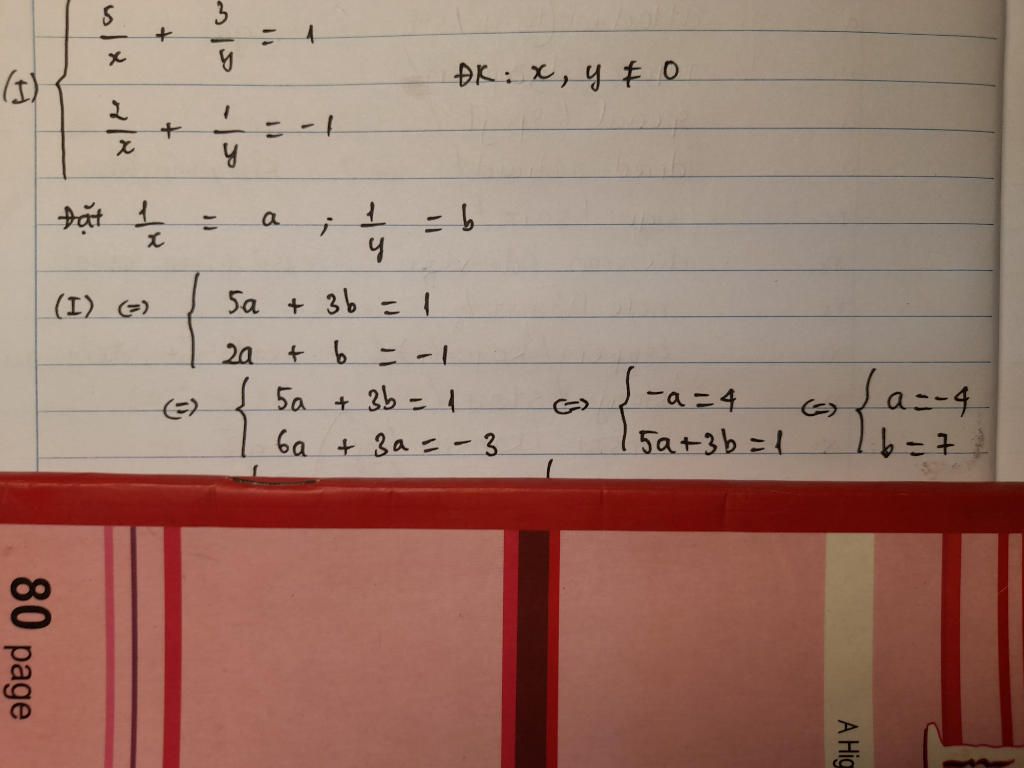 (I) { 5/x + 3/y = 1
2/x + 1/y = -1
ĐK : x, y ≠ 0
Đặt 1/x = a ; 1/y = b
(I) <=> { 5a + 3b = 1
2a + b = -1
<=> { 5a + 3b = 1
6a + 3a = -3
<=> { -a = 4
5a + 3b = 1
<=> { a = -4
b = 7
80 page
A Hig